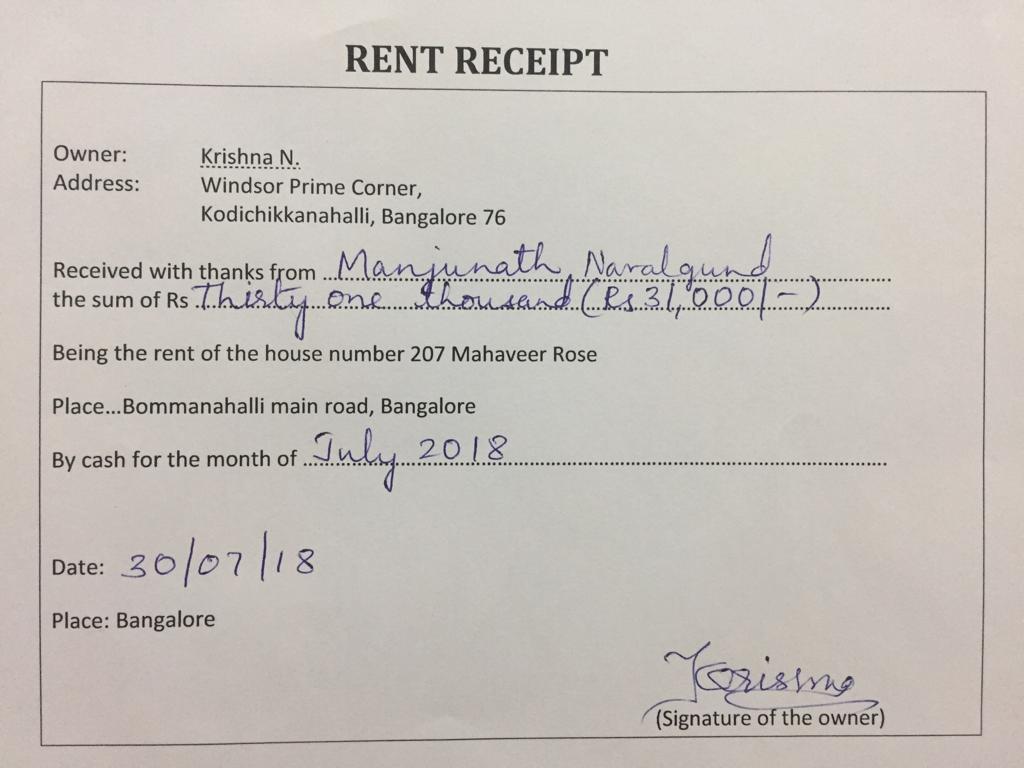 RENT RECEIPT
Owner: Krishna N.
Address: Windsor Prime Corner,
Kodichikkanahalli, Bangalore 76
Received with thanks from ...Manjunath Naralgund
the sum of Rs Thirty one thousand (Rs 31,000/-)
Being the rent of the house number 207 Mahaveer Rose
Place...Bommanahalli main road, Bangalore
By cash for the month of ...July 2018
Date: 30/07/18
Place: Bangalore
(Signature of the owner)